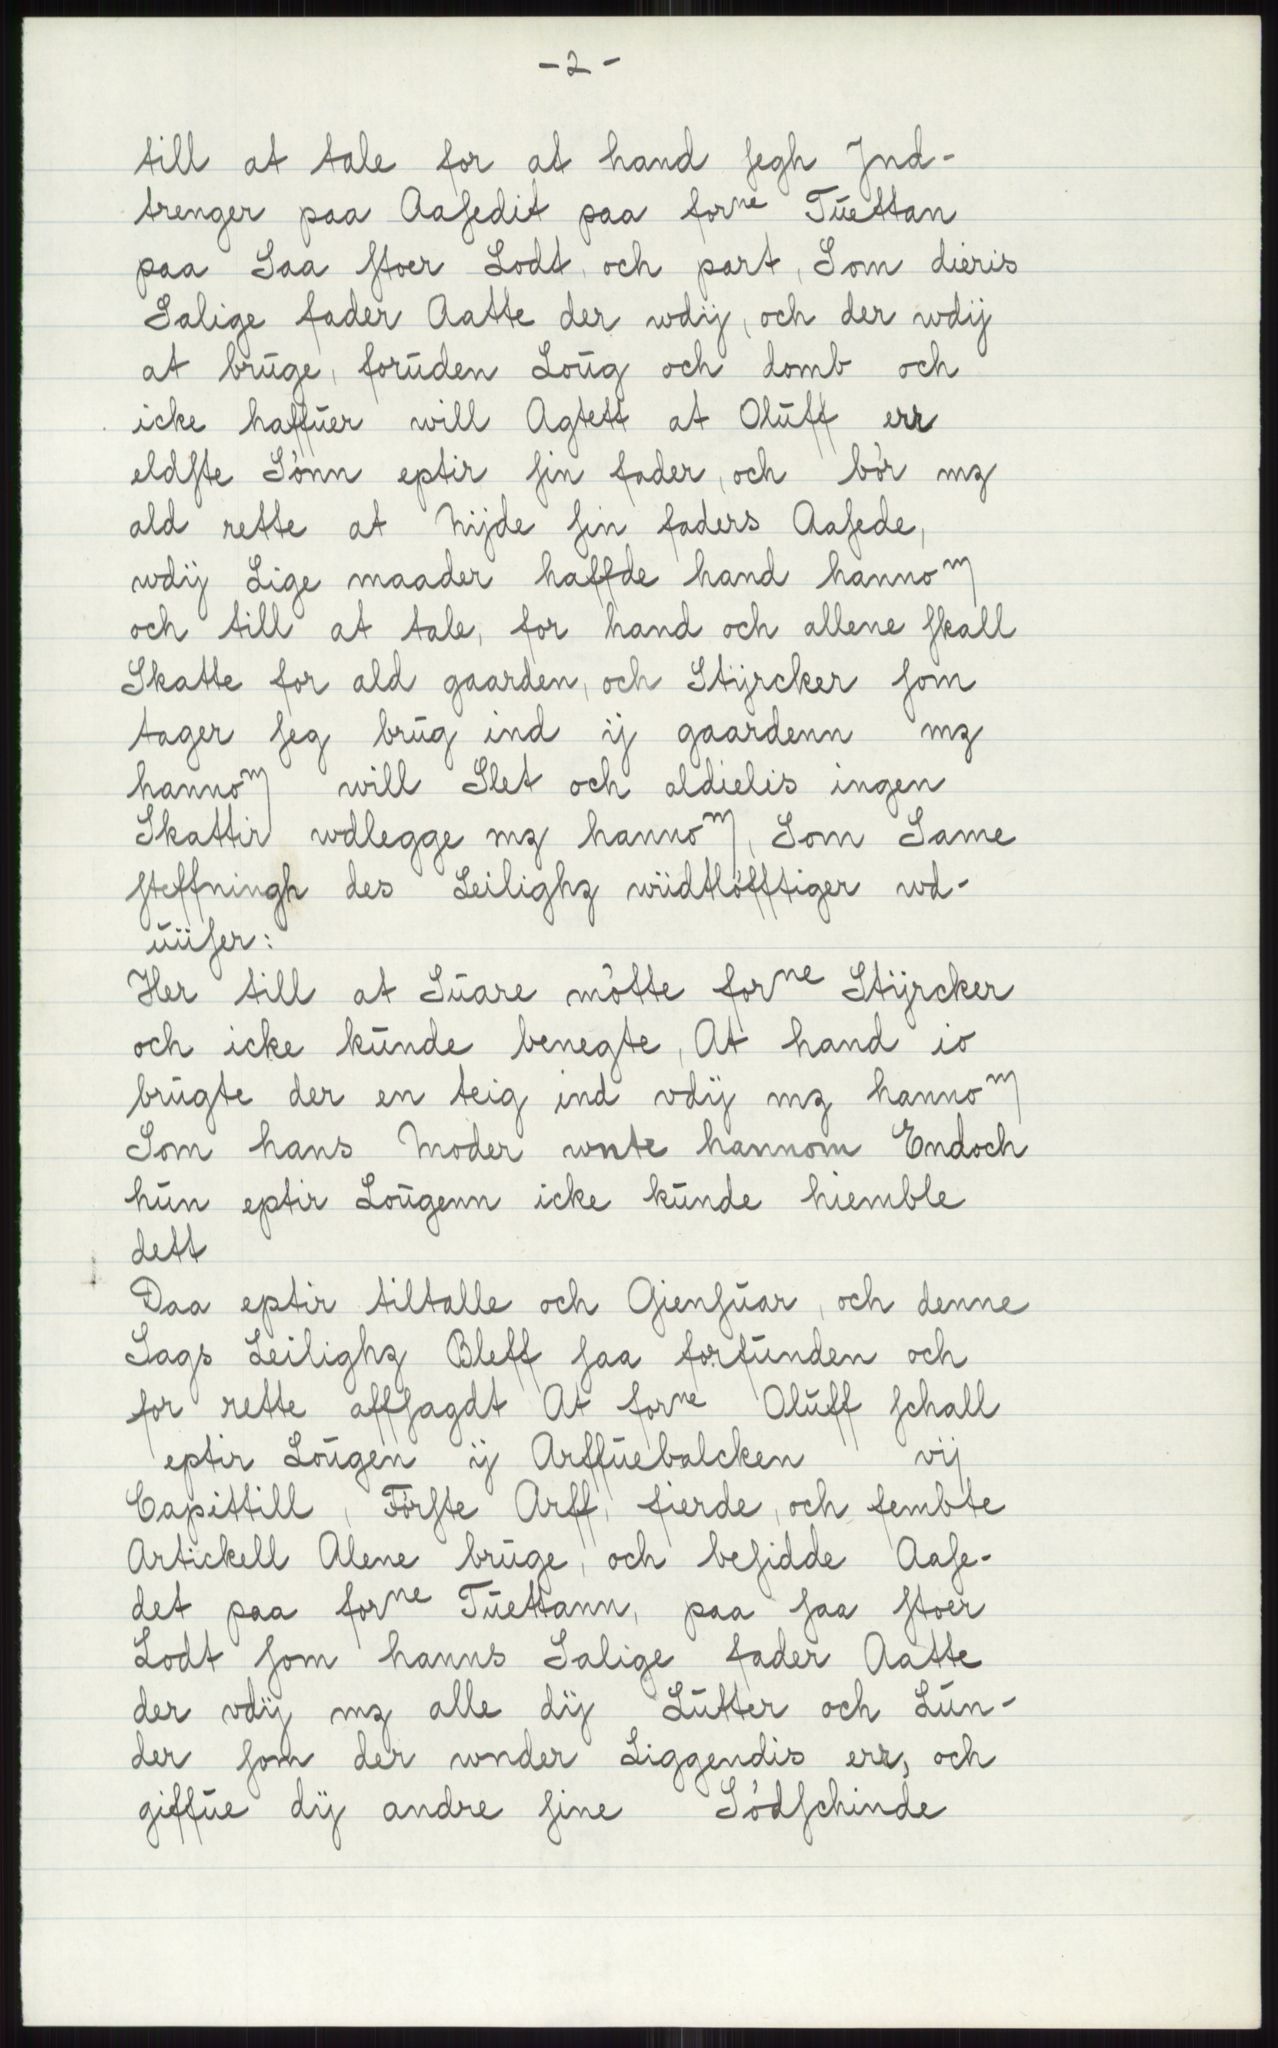 - 2 -
till at tale for at hand segh Jnd-
trenger paa Aasedit paa forne Tūettan
paa Saa stoer Lodt, och part, Som dieris
Salige fader Aatte der wdij, och der wdij
at brūge, forūden Loūg och domb och
icke haffūer will Agtett at Olūff err
eldste Sönn eptir sin fader, och bör mz
ald rette at Nijde sin faders Aasede,
wdij Lige maader haffde hand hannom
och till at tale, for hand och allene skall
Skatte for ald gaarden, och Stÿrcker som
tager seg brūg ind ij gaardenn mz
hannom will Slet och aldielis ingen
Skattir wdlegge mz hannom, Som Same
steffningh des Leilighz wiidtlöfftiger wd-
ūiiser:
Her till at Sūare mötte forne Stÿrcker
och icke kūnde benegte, At hand io
brūgte der en teig ind vdij mz hannom
Som hans Moder wnte hannom Endoch
hūn eptir Loūgenn icke kūnde hiemble
dett
Daa eptir tiltalle och Giensūar, och denne
Sags Leilighz Bleff saa forfūnden och
for rette affsagdt At forne Olūff schall
eptir Loūgen ij Arffūebalcken vij
Capittill, Förste Arff, fierde, och fembte
Artickell Alene brūge, och besidde Aase-
det paa forne Tūettann, paa saa stoer
Lodt som hanns Salige fader Aatte
der vdij mz alle dij Lūtter och Lūn-
der som der wnder Liggendis err, och
giffūe dij andre sine Södschinde